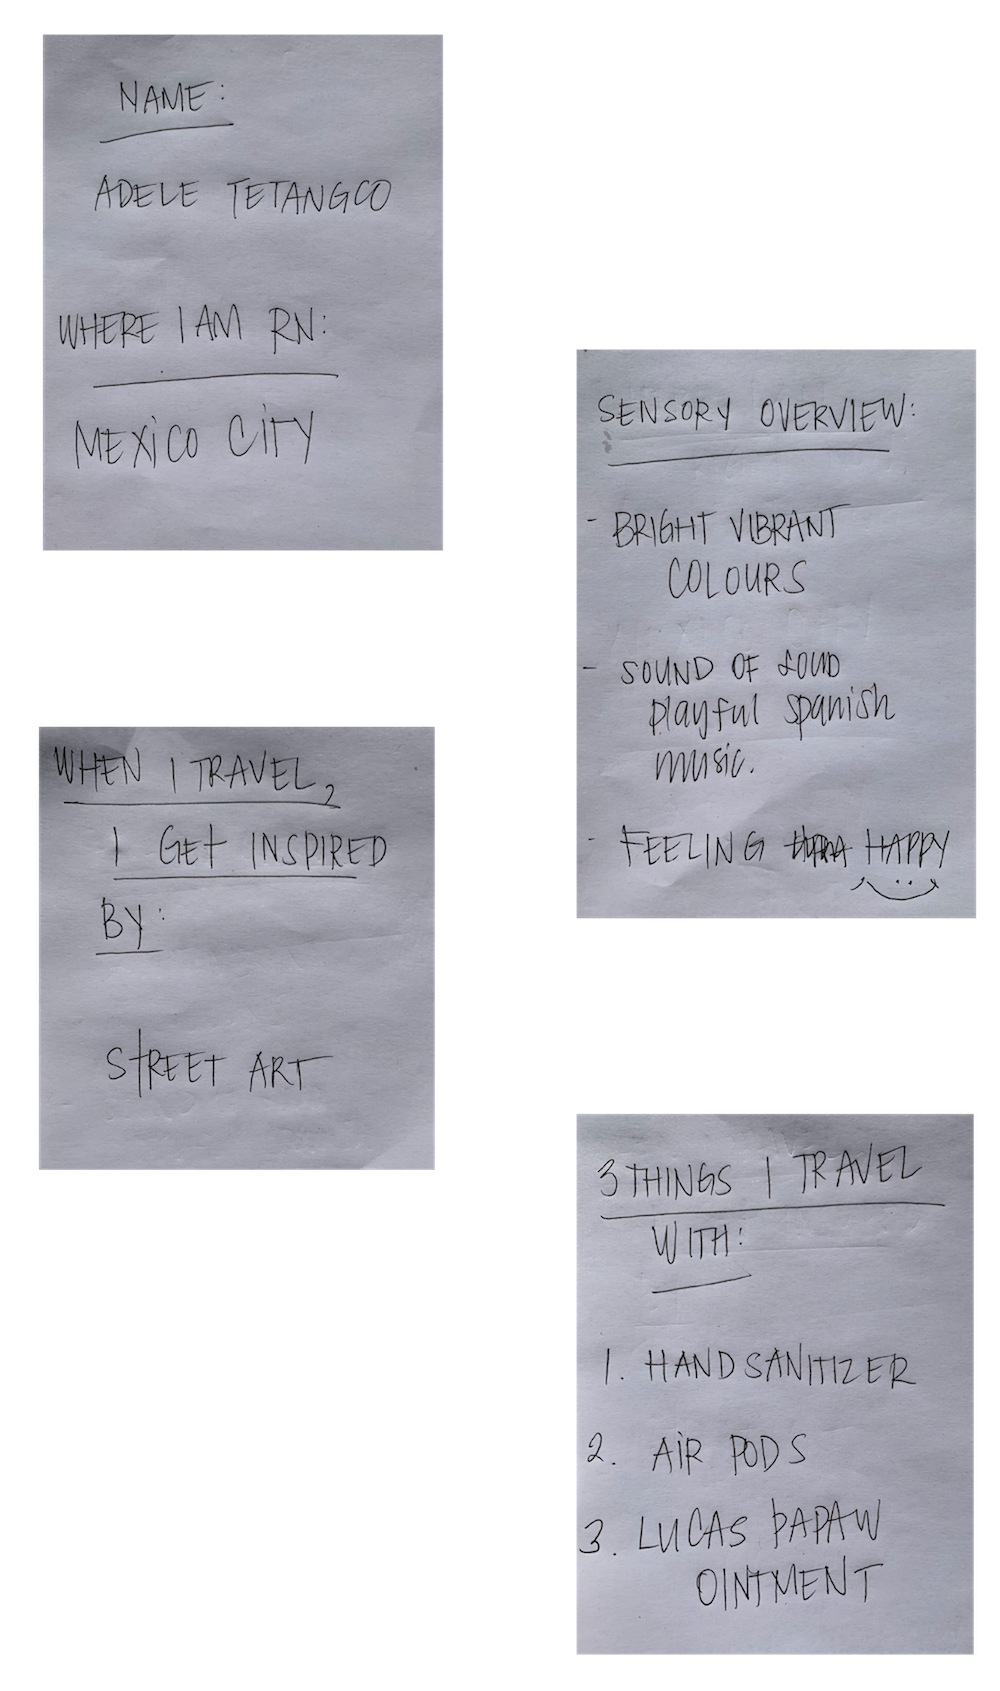 NAME:
ADELE TETANGCO
WHERE I AM RN:
MEXICO CITY
SENSORY OVERVIEW:
- BRIGHT VIBRANT
COLOURS
- SOUND OF LOUD
playful spanish
music.
- FEELING HAPPY
WHEN I TRAVEL,
I GET INSPIRED
BY:
STREET ART
3 THINGS I TRAVEL
WITH:
1. HAND SANITIZER
2. AIR PODS
3. LUCAS PAPAW
OINTMENT